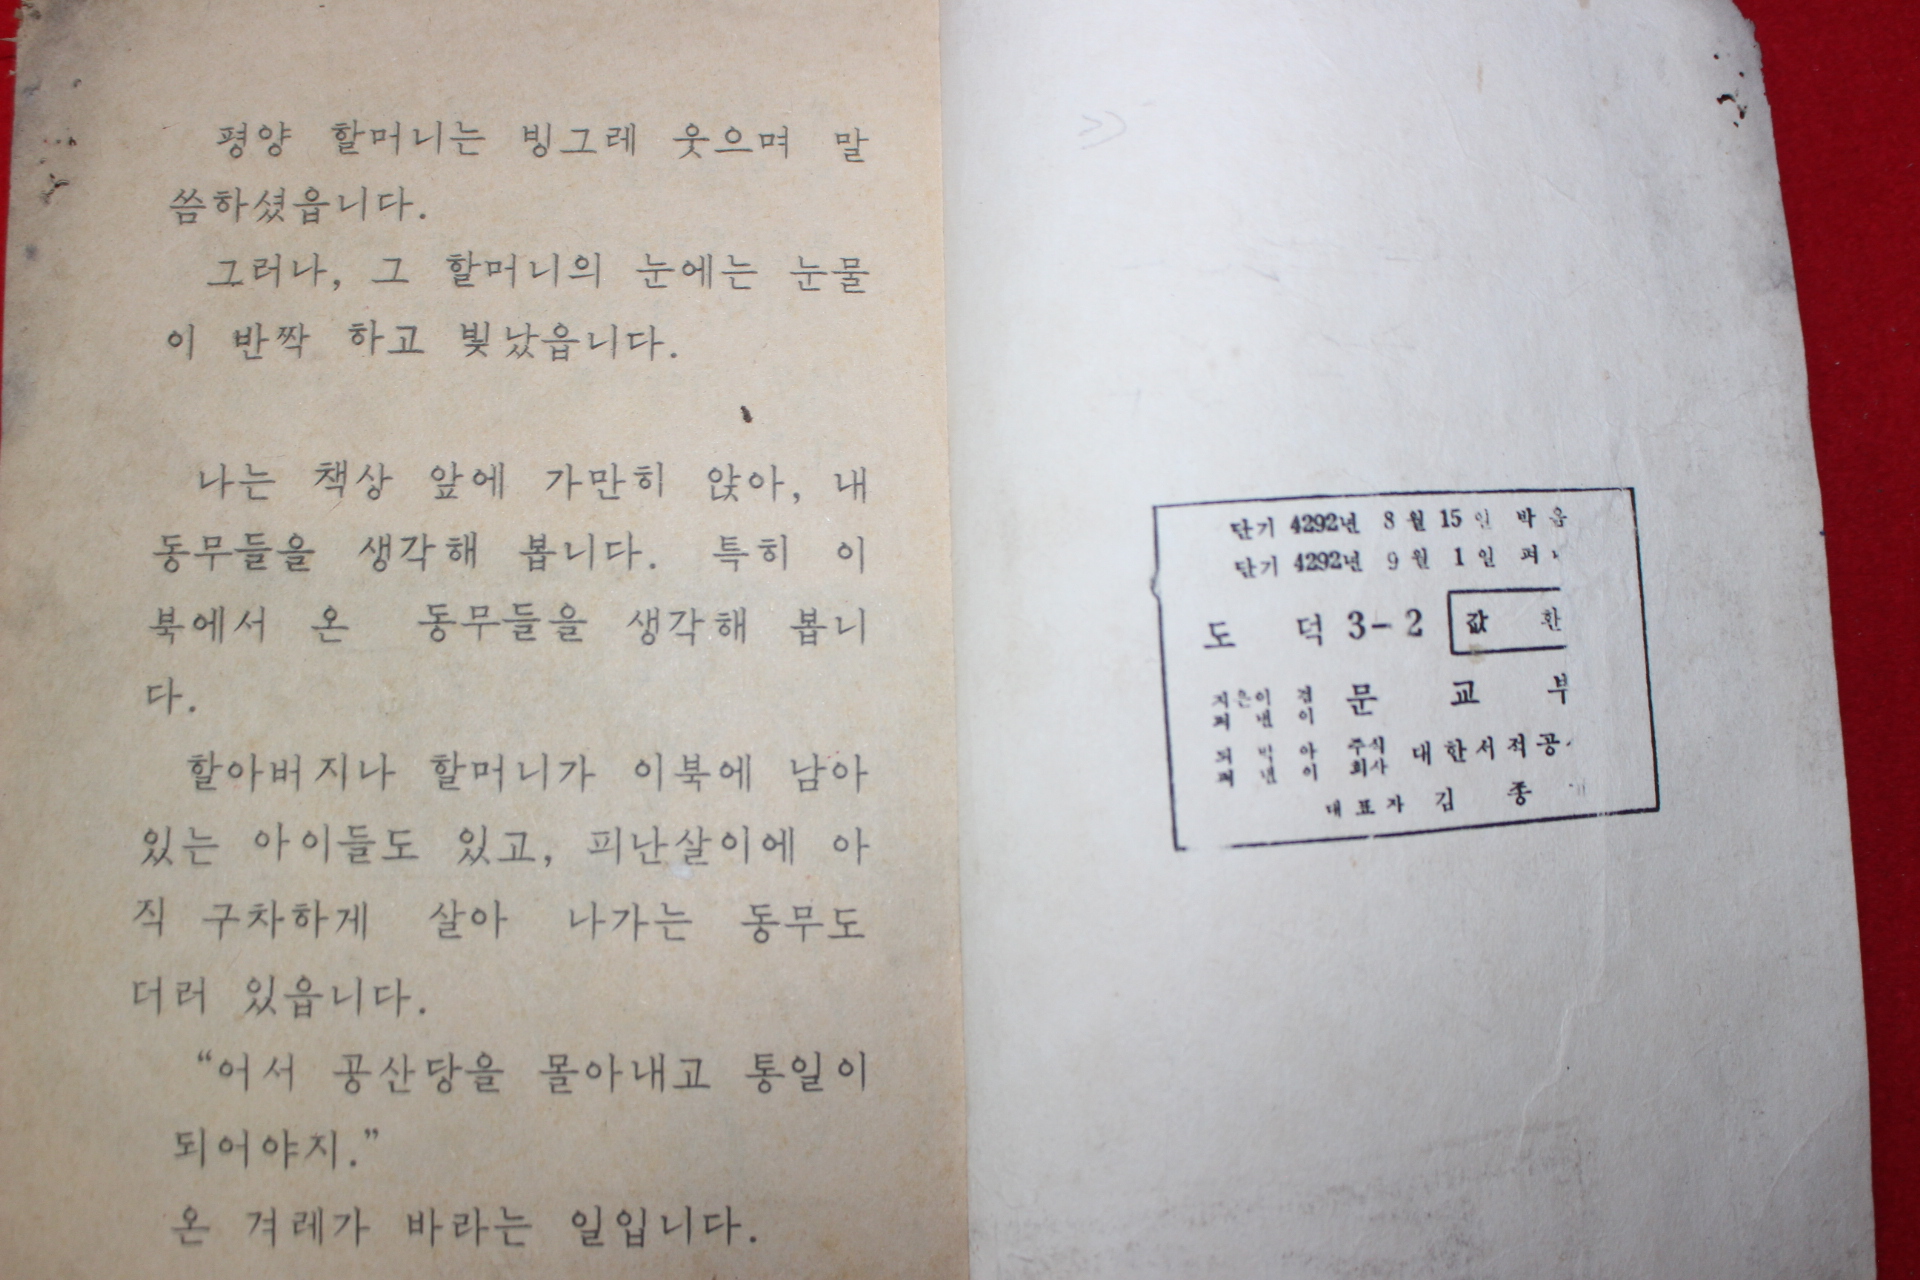 평양 할머니는 빙그레 웃으며 말
씀하셨읍니다.
그러나, 그 할머니의 눈에는 눈물
이 반짝 하고 빛났읍니다.
나는 책상 앞에 가만히 앉아, 내
동무들을 생각해 봅니다. 특히 이
북에서 온 동무들을 생각해 봅니
다.
할아버지나 할머니가 이북에 남아
있는 아이들도 있고, 피난살이에 아
직 구차하게 살아 나가는 동무도
더러 있읍니다.
“어서 공산당을 몰아내고 통일이
되어야지.”
온 겨레가 바라는 일입니다.
단기 4292년 8월 15일 박음
단기 4292년 9월 1일 펴
도 덕 3-2 값 환
지은이 겸 펴낸이 문 교 부
되박아 펴낸이 주식회사 대한서적공
대표자 김 종